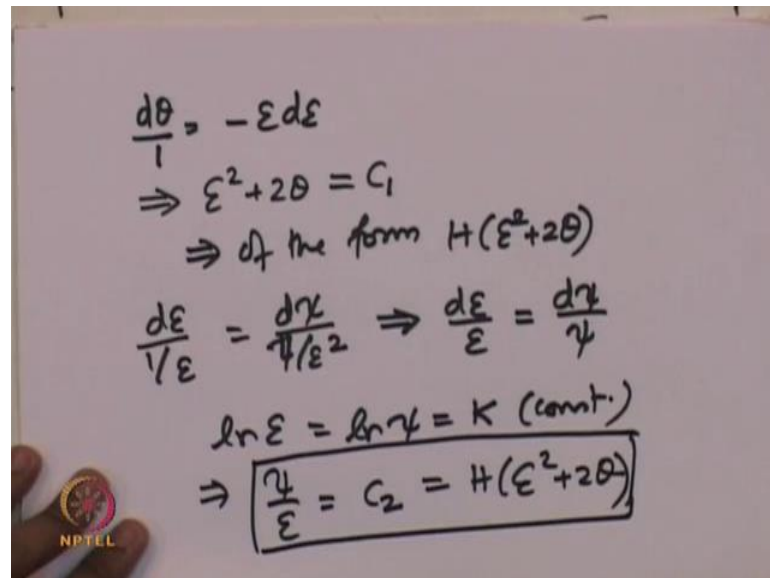 dθ/1 = -ε dε
⇒ ε² + 2θ = C₁
⇒ of the form H(ε²+2θ)
dε/(1/ε) = dψ/(ψ/ε²) ⇒ dε/ε = dψ/ψ
ln ε = ln ψ = K (const.)
⇒ ψ/ε = C₂ = H(ε²+2θ)
NPTEL